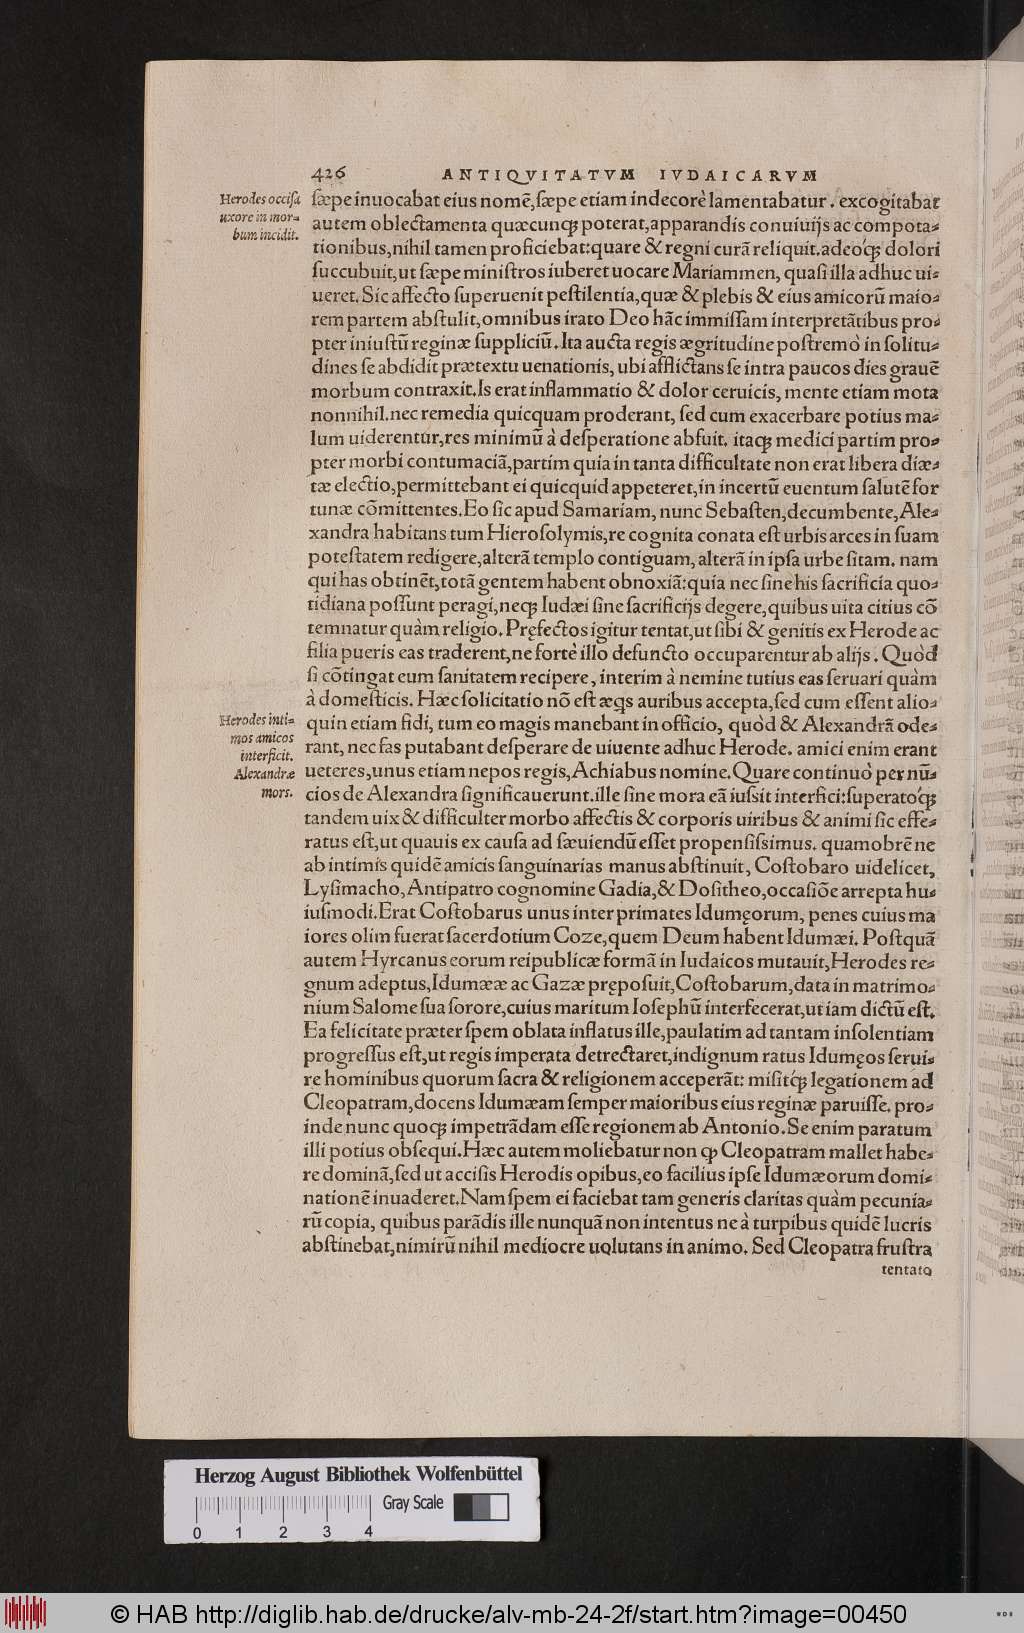 426 ANTIQVITATVM IVDAICARVM
Herodes occiſa
uxore in mor⸗
bum incidit.
ſæpe inuocabat eius nomē, ſæpe etiam indecorè lamentabatur. excogitabat
autem oblectamenta quæcunqꝫ poterat, apparandis conuiuijs ac compota⸗
tionibus, nihil tamen proficiebat: quare & regni curā reliquit. adeóqꝫ dolori
ſuccubuit, ut ſæpe miniſtros iuberet uocare Mariammen, quaſi illa adhuc ui⸗
ueret. Sic affecto ſuperuenit peſtilentia, quæ & plebis & eius amicorū maio⸗
rem partem abſtulit, omnibus irato Deo hāc immiſſam interpretātibus pro⸗
pter iniuſtū reginæ ſuppliciū. Ita aucta regis ægritudine poſtremò in ſolitu⸗
dines ſe abdidit prætextu uenationis, ubi afflictans ſe intra paucos dies grauē
morbum contraxit. Is erat inflammatio & dolor ceruicis, mente etiam mota
nonnihil. nec remedia quicquam proderant, ſed cum exacerbare potius ma⸗
lum uiderentur, res minimū à deſperatione abfuit. itaqꝫ medici partim pro⸗
pter morbi contumaciā, partim quia in tanta difficultate non erat libera diæ⸗
tæ electio, permittebant ei quicquid appeteret, in incertū euentum ſalutē for
tunæ cōmittentes. Eo ſic apud Samariam, nunc Sebaſten, decumbente, Ale⸗
xandra habitans tum Hieroſolymis, re cognita conata eſt urbis arces in ſuam
poteſtatem redigere, alterā templo contiguam, alterā in ipſa urbe ſitam. nam
qui has obtinēt, totā gentem habent obnoxiā: quia nec ſine his ſacrificia quo⸗
tidiana poſſunt peragi, neqꝫ Iudæi ſine ſacrificijs degere, quibus uita citius cō
temnatur quàm religio. Pręfectos igitur tentat, ut ſibi & genitis ex Herode ac
filia pueris eas traderent, ne fortè illo defuncto occuparentur ab alijs. Quòd
ſi cōtingat eum ſanitatem recipere, interim à nemine tutius eas ſeruari quàm
à domeſticis. Hæc ſolicitatio nō eſt æqꝫs auribus accepta, ſed cum eſſent alio⸗
Herodes inti⸗
mos amicos
interficit.
Alexandræ
mors.
quin etiam fidi, tum eo magis manebant in officio, quòd & Alexandrā ode⸗
rant, nec fas putabant deſperare de uiuente adhuc Herode. amici enim erant
ueteres, unus etiam nepos regis, Achiabus nomine. Quare continuò per nū⸗
cios de Alexandra ſignificauerunt. ille ſine mora eā iuſsit interfici: ſuperatóqꝫ
tandem uix & difficulter morbo affectis & corporis uiribus & animi ſic effe⸗
ratus eſt, ut quauis ex cauſa ad ſæuiendū eſſet propenſiſsimus. quamobrē ne
ab intimis quidē amicis ſanguinarias manus abſtinuit, Coſtobaro uidelicet,
Lyſimacho, Antipatro cognomine Gadia, & Doſitheo, occaſiōe arrepta hu⸗
iuſmodi. Erat Coſtobarus unus inter primates Idumęorum, penes cuius ma
iores olim fuerat ſacerdotium Coze, quem Deum habent Idumæi. Poſtquā
autem Hyrcanus eorum reipublicæ formā in Iudaicos mutauit, Herodes re⸗
gnum adeptus, Idumææ ac Gazæ prępoſuit, Coſtobarum, data in matrimo⸗
nium Salome ſua ſorore, cuius maritum Ioſephū interfecerat, ut iam dictū eſt.
Ea felicitate præter ſpem oblata inflatus ille, paulatim ad tantam inſolentiam
progreſſus eſt, ut regis imperata detrectaret, indignum ratus Idumęos ſerui⸗
re hominibus quorum ſacra & religionem acceperāt: miſitq́ꝫ legationem ad
Cleopatram, docens Idumæam ſemper maioribus eius reginæ paruiſſe. pro⸗
inde nunc quoqꝫ impetrādam eſſe regionem ab Antonio. Se enim paratum
illi potius obſequi. Hæc autem moliebatur non ꝙ Cleopatram mallet habe⸗
re dominā, ſed ut acciſis Herodis opibus, eo facilius ipſe Idumæorum domi⸗
nationē inuaderet. Nam ſpem ei faciebat tam generis claritas quàm pecunia⸗
rū copia, quibus parādis ille nunquā non intentus ne à turpibus quidē lucris
abſtinebat, nimirū nihil mediocre uolutans in animo. Sed Cleopatra fruſtra
tentato
Herzog August Bibliothek Wolfenbüttel
Gray Scale
0 1 2 3 4
© HAB http://diglib.hab.de/drucke/alv-mb-24-2f/start.htm?image=00450